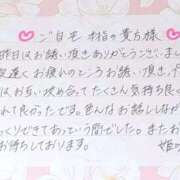 ご自宅 本指の貴方様
昨日はお誘い頂きありがとうございまし
夜遅くお疲れのところお誘い頂き
はお互い攻め合ってたくさん気持ち良く
れて良かったです。色んなお話ししながら
っくりできてあっという間でした。またお
お待ちしております。
姫